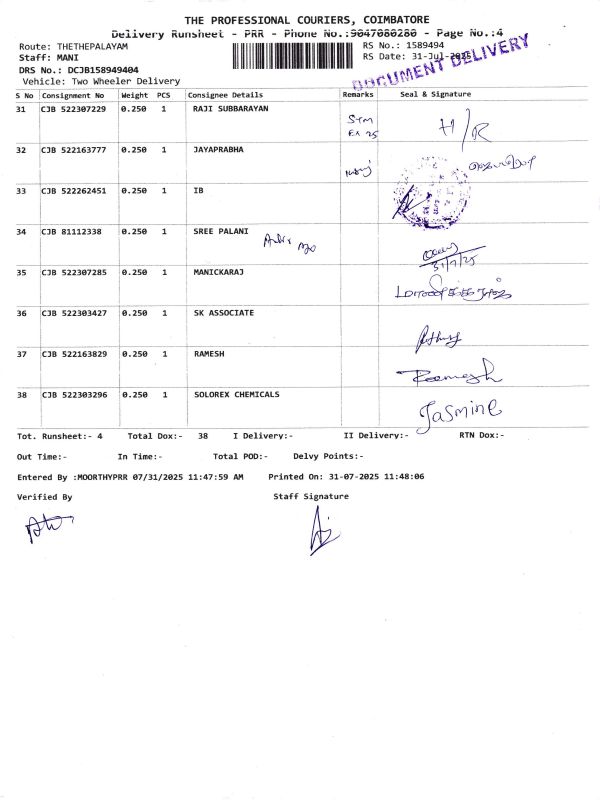 THE PROFESSIONAL COURIERS, COIMBATORE
Delivery Runsheet - PRR - Phone No.:9047080280 - Page No.:4
Route: THETHEPALAYAM RS No.: 1589494
Staff: MANI RS Date: 31-Jul-2025
DOCUMENT DELIVERY
DRS No.: DCJB158949404
Vehicle: Two Wheeler Delivery
S No Consignment No Weight PCS Consignee Details Remarks Seal & Signature
31 CJB 522307229 0.250 1 RAJI SUBBARAYAN H/R
32 CJB 522163777 0.250 1 JAYAPRABHA
33 CJB 522262451 0.250 1 IB
34 CJB 81112338 0.250 1 SREE PALANI 31/7/25
35 CJB 522307285 0.250 1 MANICKARAJ
36 CJB 522303427 0.250 1 SK ASSOCIATE
37 CJB 522163829 0.250 1 RAMESH
38 CJB 522303296 0.250 1 SOLOREX CHEMICALS Jasmine
Tot. Runsheet:- 4 Total Dox:- 38 I Delivery:- II Delivery:- RTN Dox:-
Out Time:- In Time:- Total POD:- Delvy Points:-
Entered By :MOORTHYPRR 07/31/2025 11:47:59 AM Printed On: 31-07-2025 11:48:06
Verified By Staff Signature